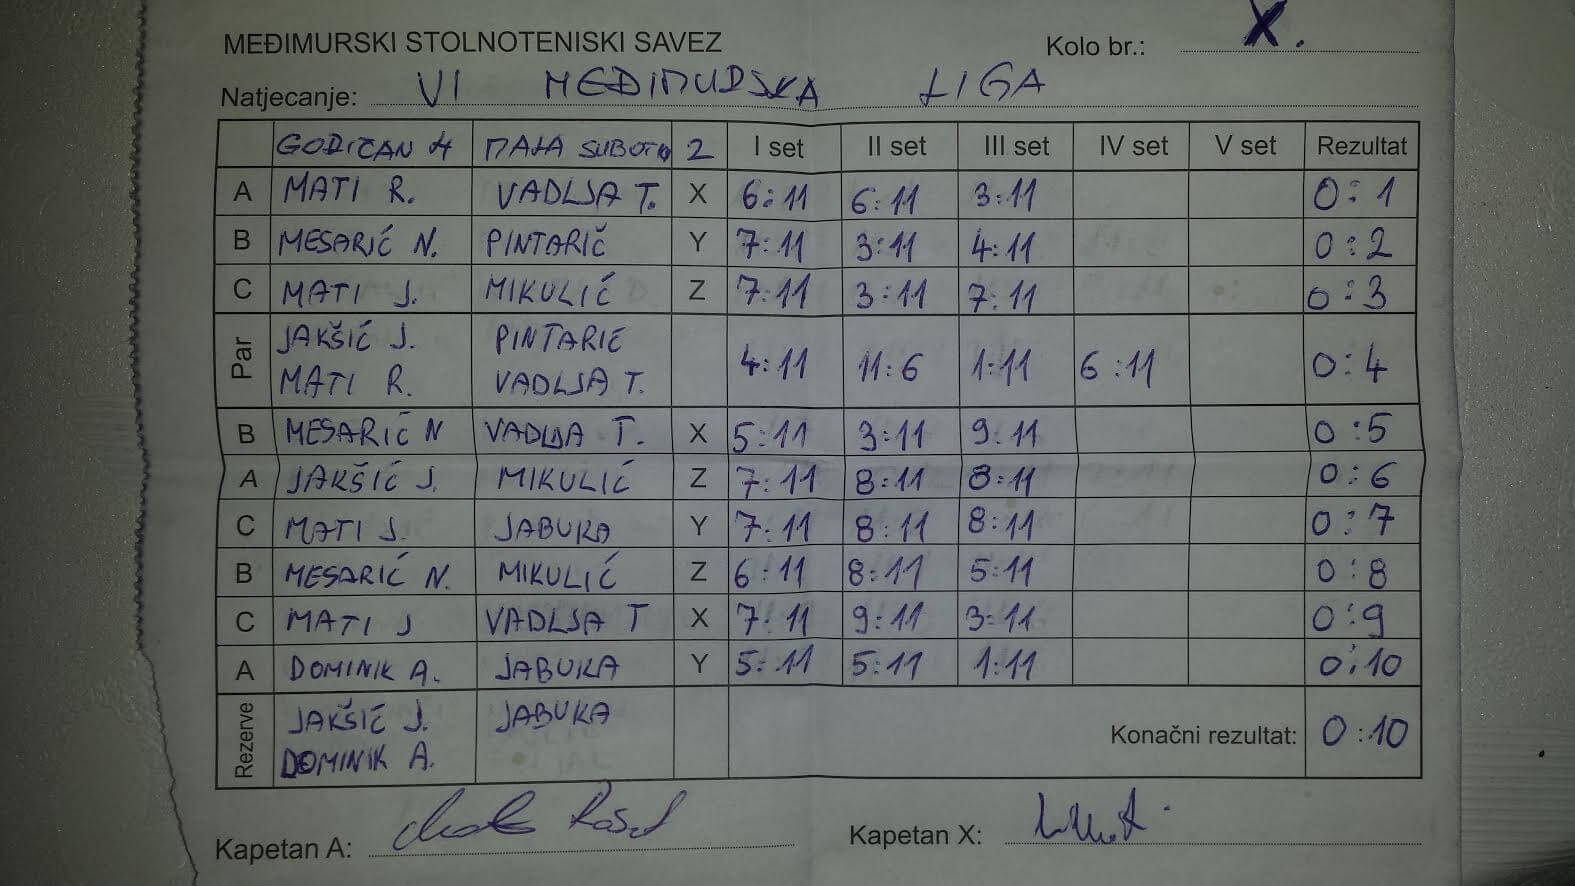 MEĐIMURSKI STOLNOTENISKI SAVEZ Kolo br.: X.
Natjecanje: VI MEĐIMURSKA LIGA
GODIČAN 4 MALA SUBOTA 2 I set II set III set IV set V set Rezultat
A MATI R. VADLJA T. X 6:11 6:11 3:11 0:1
B MESARIĆ N. PINTARIČ Y 7:11 3:11 4:11 0:2
C MATI J. MIKULIĆ Z 7:11 3:11 7:11 0:3
Par JAKŠIĆ J. PINTARIĆ
MATI R. VADLJA T. 4:11 11:6 1:11 6:11 0:4
B MESARIĆ N VADLJA T. X 5:11 3:11 9:11 0:5
A JAKŠIĆ J. MIKULIĆ Z 7:11 8:11 8:11 0:6
C MATI J. JABUKA Y 7:11 8:11 8:11 0:7
B MESARIĆ N. MIKULIĆ Z 6:11 8:11 5:11 0:8
C MATI J VADLJA T X 7:11 9:11 3:11 0:9
A DOMINIK A. JABUKA Y 5:11 5:11 1:11 0:10
Rezerve JAKŠIĆ J. JABUKA
DOMINIK A. Konačni rezultat: 0:10
Kapetan A: Kapetan X: